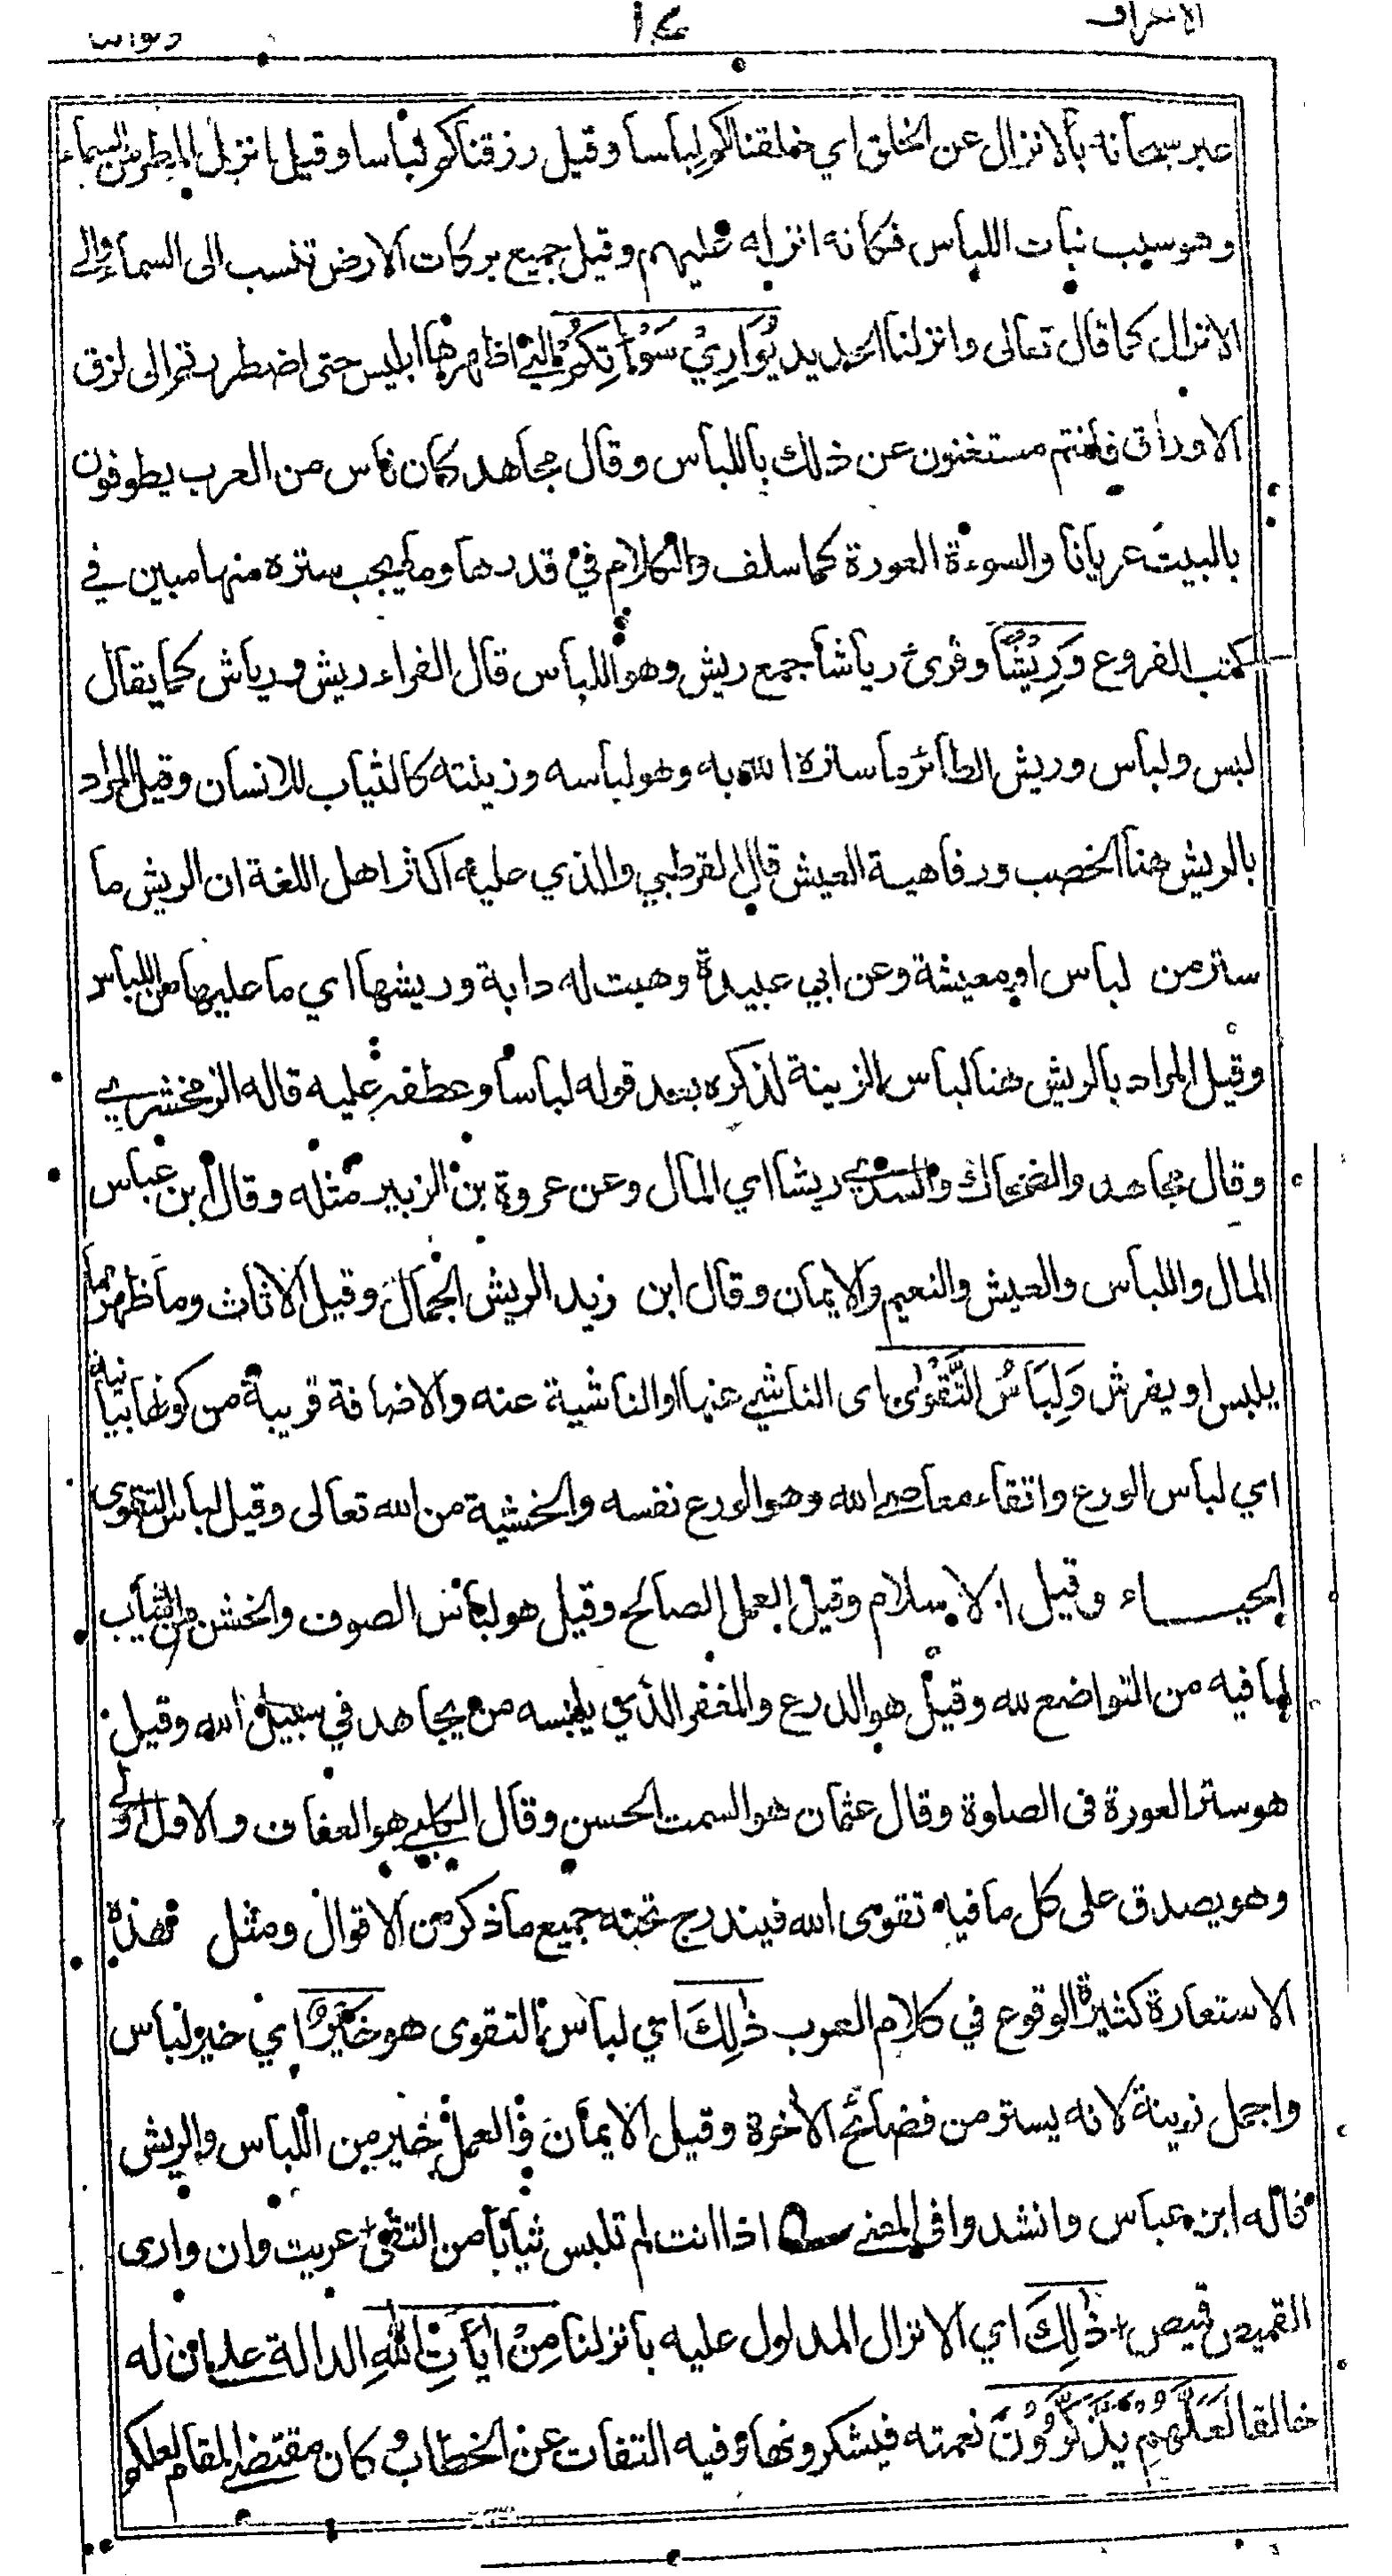 الاعراف ولواننا
عبر سبحانه بالانزال عن الخلق اي خلقنا لكم لباسا وقيل رزقناكم لباسا وقيل انزل المطر من السماء
وهو سبب نبات اللباس فكانه انزله عليهم وقيل جميع بركات الارض تنسب الى السماء والى
الانزال كما قال تعالى وانزلنا الحديد يُوَارِيْ سَوْاٰتِكُمْ التي اظهرها ابليس حتى اضطررتم الى لزق
الاوراق فانتم مستغنون عن ذلك باللباس وقال مجاهد كان ناس من العرب يطوفون
بالبيت عريانا والسوءة العورة كما سلف والكلام في قدرها وما يجب ستره منها مبين في
كتب الفروع وَرِيْشًا وقرئ رياشا جمع ريش وهو اللباس قال الفراء ريش ورياش كما يقال
لبس ولباس وريش الطائر ما ستره الله به وهو لباسه وزينته كالثياب للانسان وقيل المراد
بالريش هنا الخصب ورفاهية العيش قال القرطبي والذي عليه اكثر اهل اللغة ان الريش ما
ستر من لباس او معيشة وعن ابي عبيدة وهبت له دابة وريشها اي ما عليها من اللباس
وقيل المراد بالريش هنا لباس الزينة لذكره بعد قوله لباسا وعطفه عليه قاله الزمخشري
وقال مجاهد والضحاك والسدي ريشا اي المال وعن عروة بن الزبير مثله وقال ابن عباس
المال واللباس والعيش والنعيم والايمان وقال ابن زيد الريش الجمال وقيل الاثاث وما ظهر مما
يلبس او يفرش وَلِبَاسُ التَّقْوٰى اى الناشي عنها او الناشية عنه والاضافة قريبة من كونها بيانية
اي لباس الورع واتقاء معاصي الله وهو الورع نفسه والخشية من الله تعالى وقيل لباس التقوى
الحيــاء وقيل الاسلام وقيل العمل الصالح وقيل هو لباس الصوف والخشن من الثياب
لما فيه من التواضع لله وقيل هو الدرع والمغفر الذي يلبسه من يجاهد في سبيل الله وقيل
هو ستر العورة فى الصلوة وقال عثمان هو السمت الحسن وقال الكلبي هو العفاف والاول اولى
وهو يصدق على كل ما فيه تقوى الله فيندرج تحته جميع ما ذكر من الاقوال ومثل هذه
الاستعارة كثيرة الوقوع في كلام العرب ذٰلِكَ اي لباس التقوى هو خَيْرٌ اي خير لباس
واجمل زينة لانه يستر من فضائح الاخرة وقيل الايمان والعمل خير من اللباس والريش
قاله ابن عباس وانشدوا فى المعنى اذا انت لم تلبس ثيابا من التقى عريت وان وارى
القميص قميص ذٰلِكَ اي الانزال المدلول عليه بانزلنا مِنْ اٰيَاتِ اللهِ الدالة على ان له
خالقا لَعَلَّهُمْ يَذَّكَّرُوْنَ نعمته فيشكرونها وفيه التفات عن الخطاب وكان مقتضى المقام لعلكم